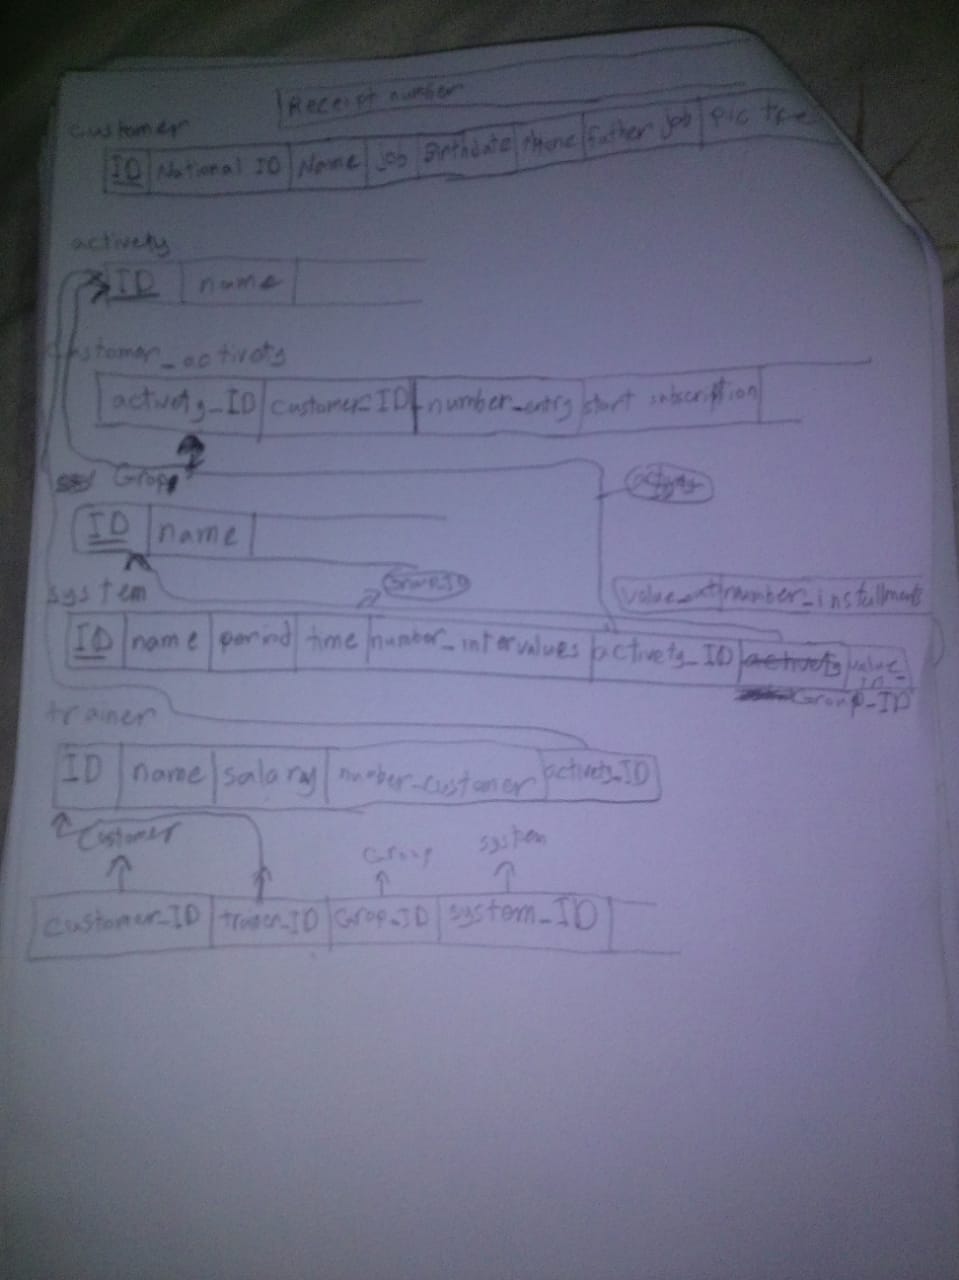 Receipt number
customer
ID National ID Name job Birthdate phone Father job pic
activety
ID name
customer_activety
activety_ID customer_ID number_entry start subscription
Grop
activety
ID name
Group_ID
system
number_installment
ID name period time number_intervalues activety_ID activety value_in
Group_ID
trainer
ID name salary number_customer activety_ID
customer Group system
customer_ID trainer_ID Grop_ID system_ID